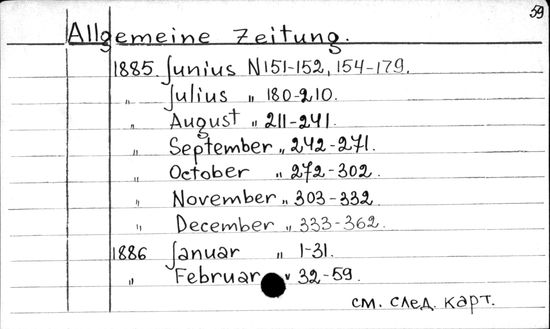 59
Allgemeine Zeitung.
1885. Junius N151-152, 154-179.
„ Julius „ 180-210.
„ August „ 211-241.
„ September „ 242-271.
„ October „ 272-302.
„ November „ 303-332
„ December „ 333-362.
1886 Januar „ 1-31.
„ Februar „ 32-59.
см. след. карт.